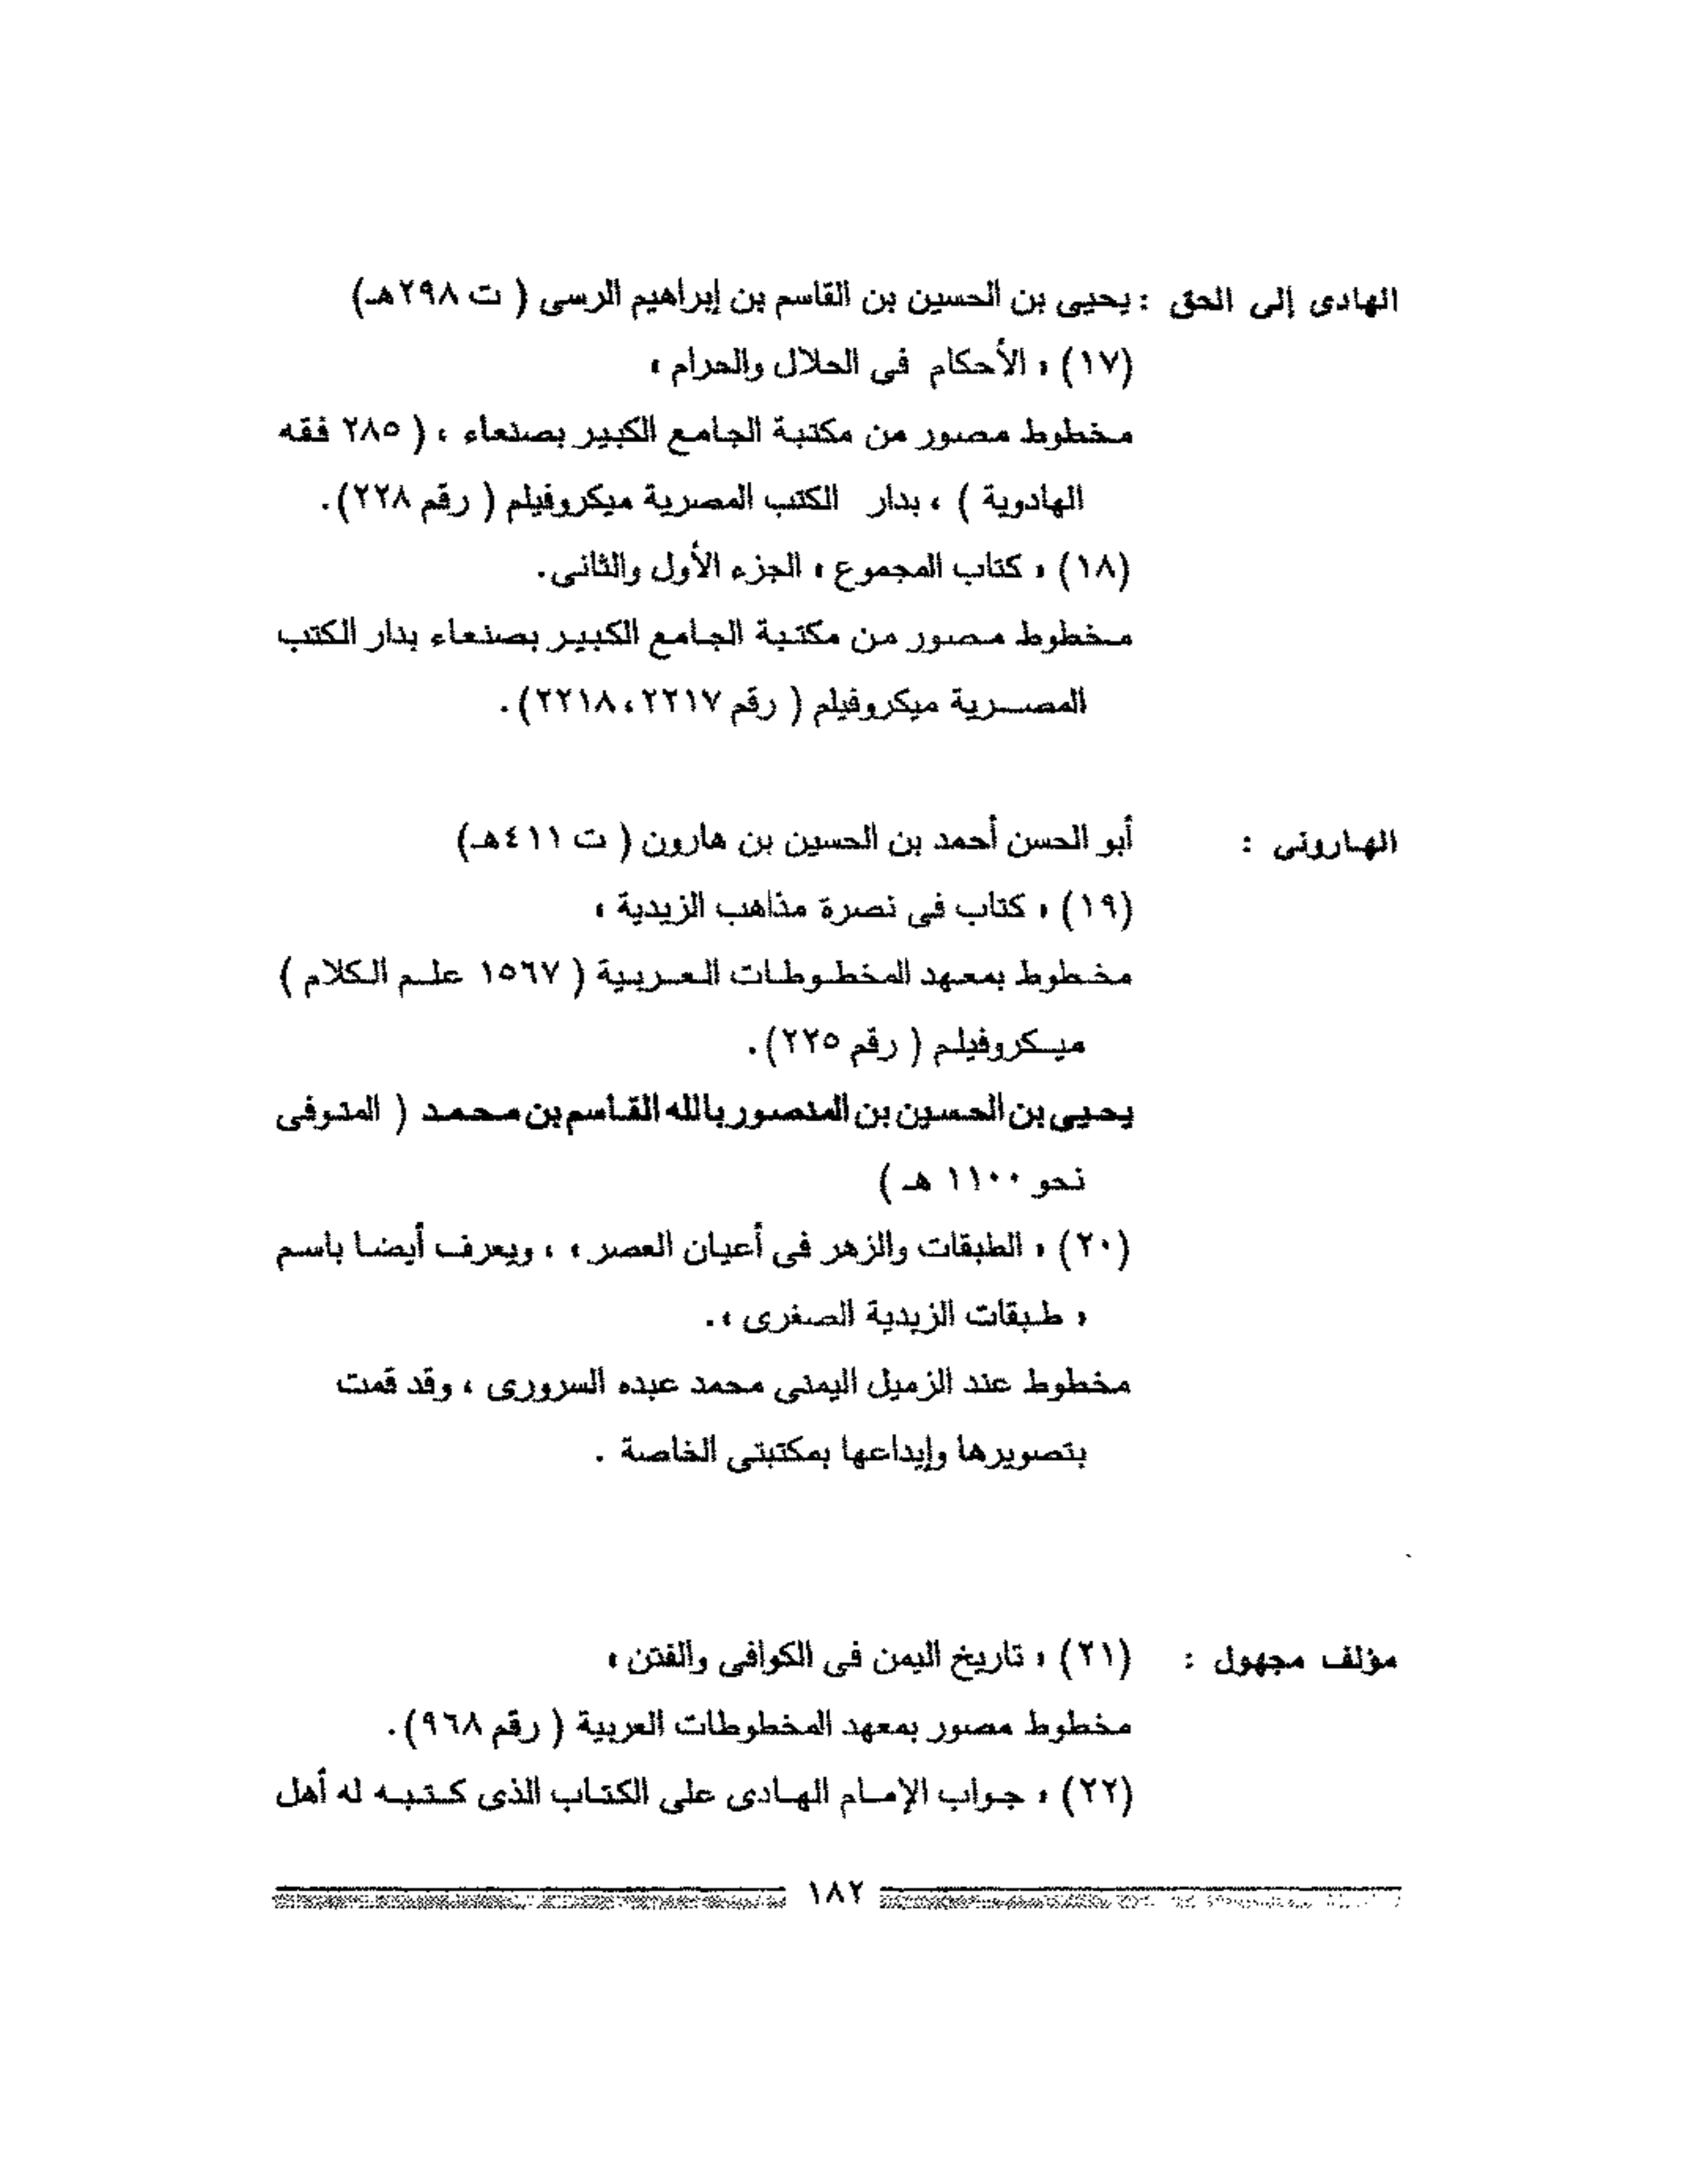 الهادى إلى الحق : يحيى بن الحسين بن القاسم بن إبراهيم الرسى ( ت ٢٩٨هـ)
(١٧) « الأحكام فى الحلال والحرام »
مخطوط مصور من مكتبة الجامع الكبير بصنعاء ، ( ٢٨٥ فقه
الهادوية ) ، بدار الكتب المصرية ميكروفيلم ( رقم ٢٢٨).
(١٨) « كتاب المجموع » الجزء الأول والثانى.
مخطوط مصور من مكتبة الجامع الكبير بصنعاء بدار الكتب
المصرية ميكروفيلم ( رقم ٢٢١٧، ٢٢١٨).
الهارونى : أبو الحسن أحمد بن الحسين بن هارون ( ت ٤١١هـ)
(١٩) « كتاب فى نصرة مذاهب الزيدية »
مخطوط بمعهد المخطوطات العربية ( ١٥٦٧ علم الكلام )
ميكروفيلم ( رقم ٢٢٥).
يحيى بن الحسين بن المنصور بالله القاسم بن محمد ( المتوفى
نحو ١١٠٠ هـ )
(٢٠) « الطبقات والزهر فى أعيان العصر » ، ويعرف أيضا باسم
« طبقات الزيدية الصغرى ».
مخطوط عند الزميل اليمنى محمد عبده السرورى ، وقد قمت
بتصويرها وإيداعها بمكتبتى الخاصة .
مؤلف مجهول : (٢١) « تاريخ اليمن فى الكوافى والفتن »
مخطوط مصور بمعهد المخطوطات العربية ( رقم ٩٦٨).
(٢٢) « جواب الإمام الهادى على الكتاب الذى كتبه له أهل
١٨٢